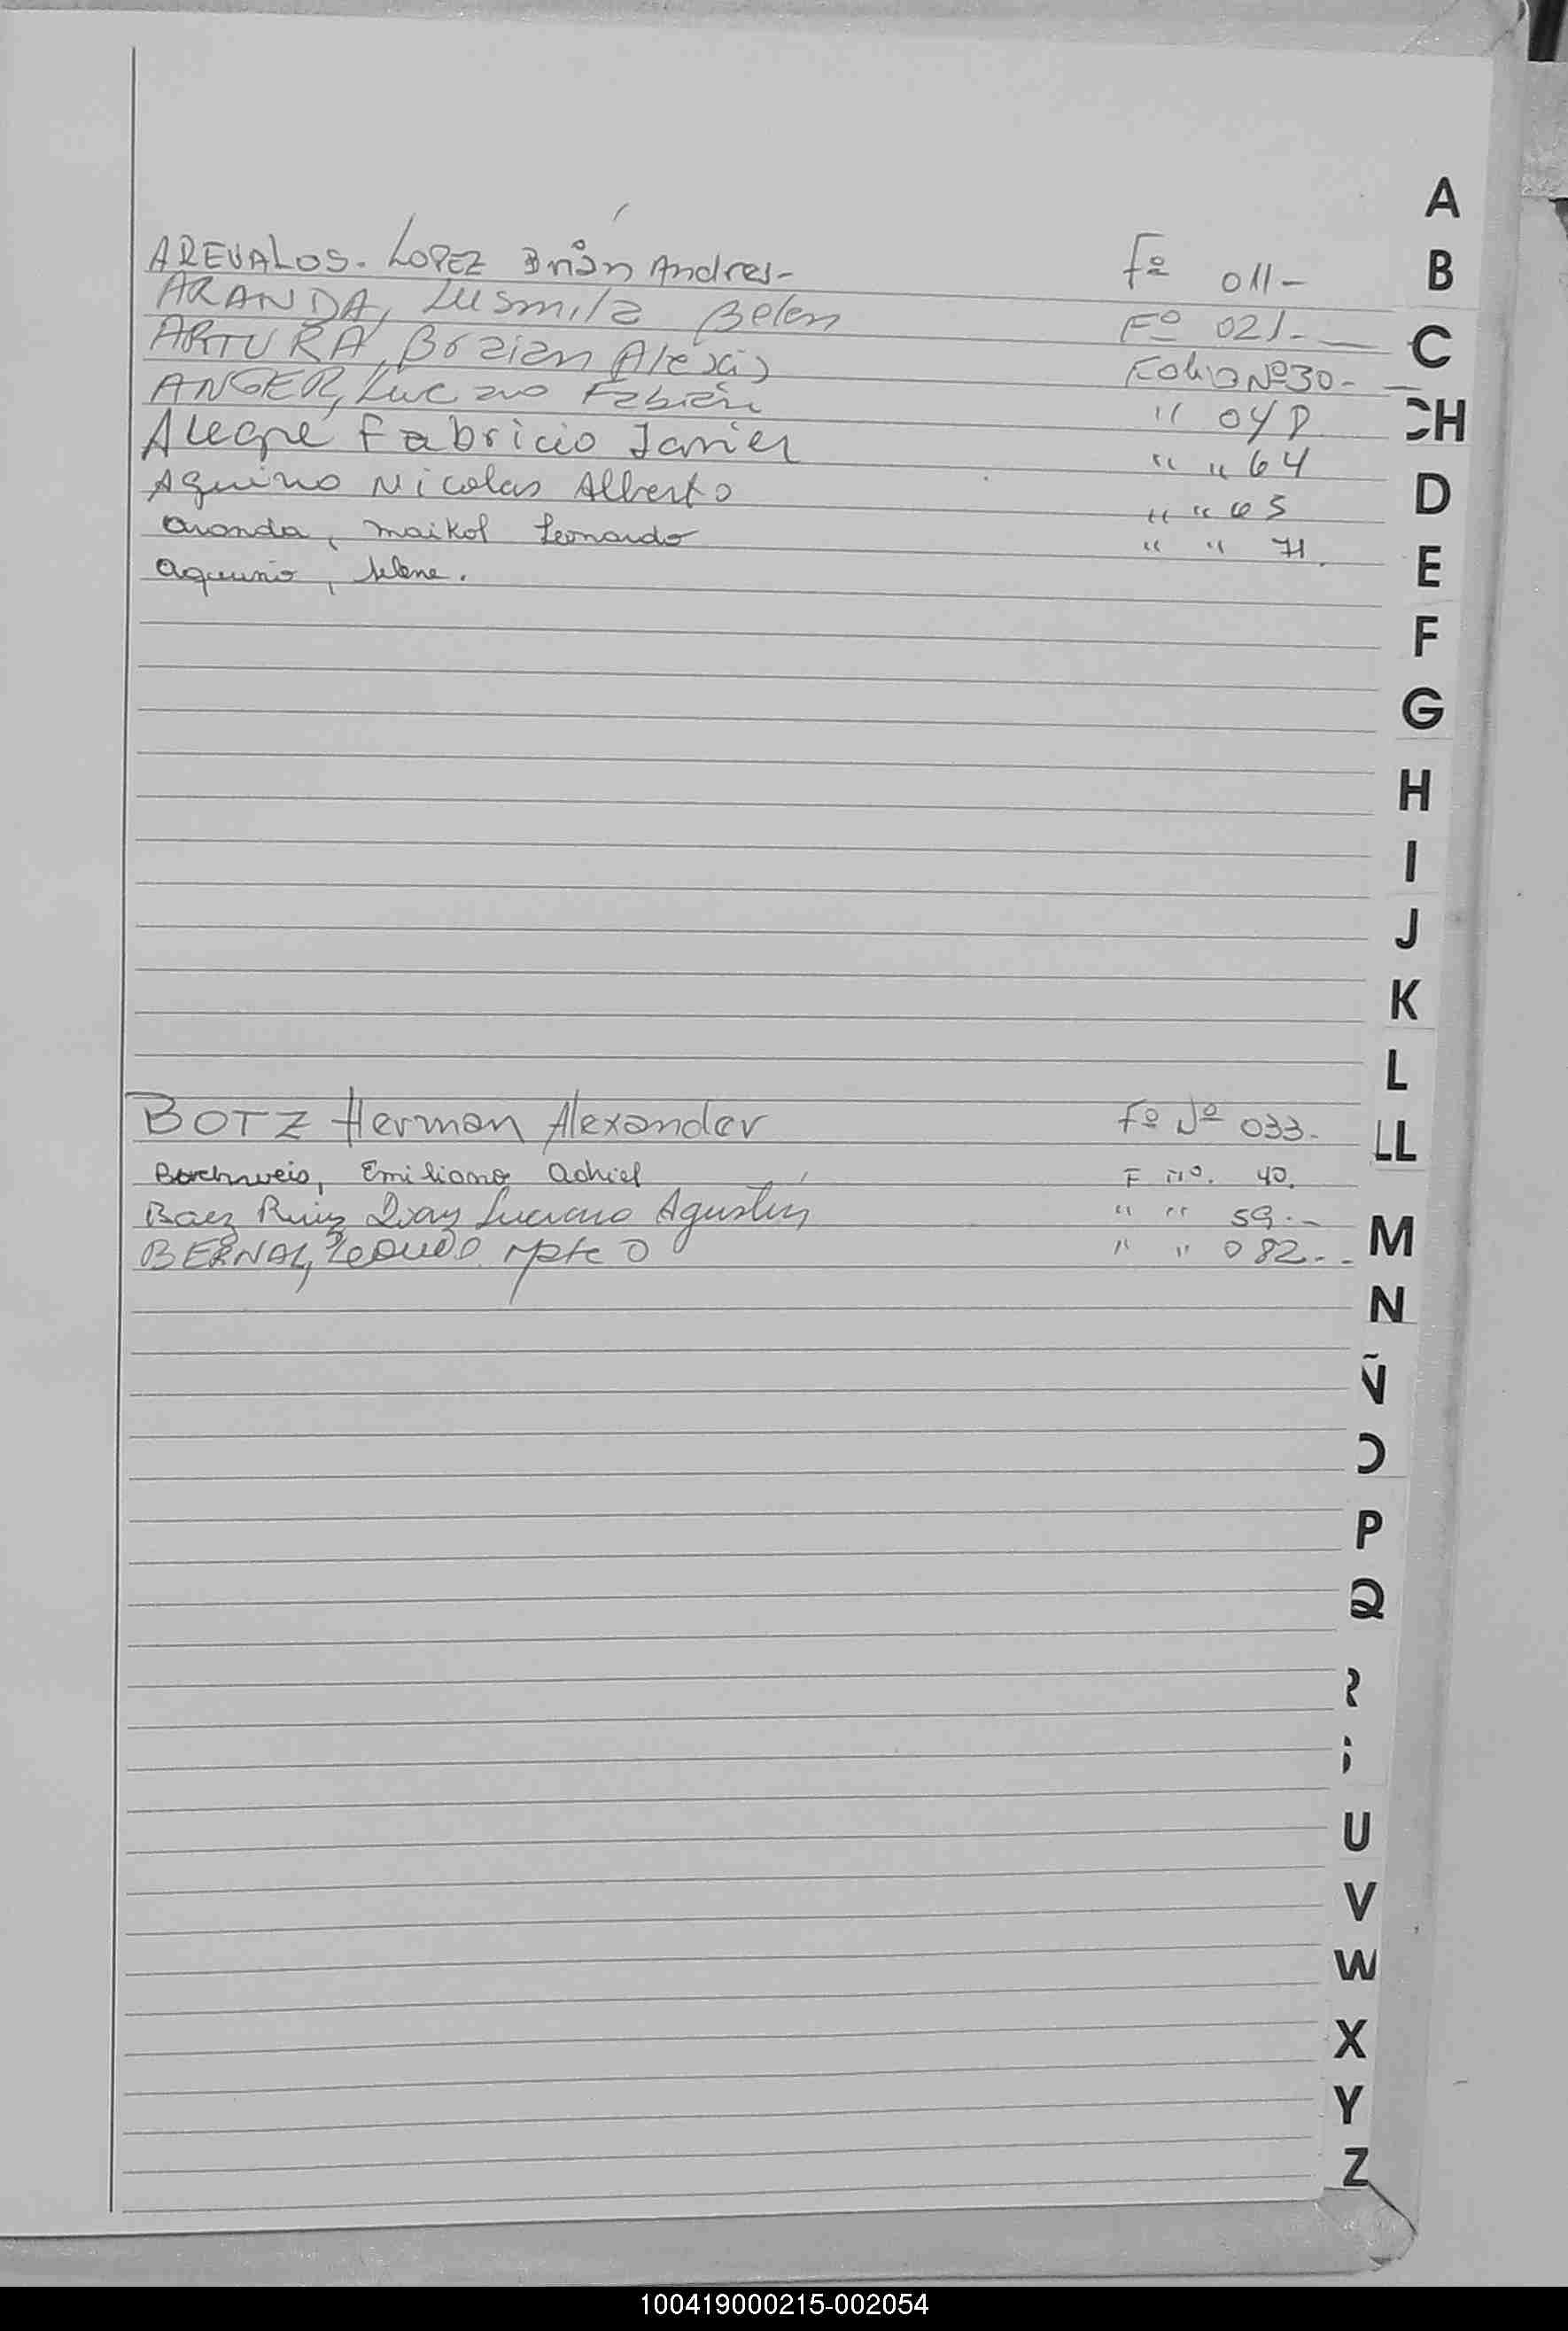 A
AREVALOS. LOPEZ Brian Andres- Fº 011-
B
ARANDA, Lusmila Belen Fº 021-
ARTURA, Braian Alexis Folio Nº30-
C
ANGER, Luciano Fabián " 048
CH
Alegre Fabricio Javier " " 64
Aquino Nicolas Alberto " " 65
D
Aranda, Maikol Leonardo " " 71.
E
Aquino, Selene.
F
G
H
I
J
K
L
BOTZ Herman Alexander Fº Nº 033-
LL
Emiliano F nº. 40.
Baez Ruiz Luciano Agustin " " 59.-
M
BERNAL, " " 082.-
N
Ñ
O
P
Q
R
U
V
W
X
Y
Z
100419000215-002054